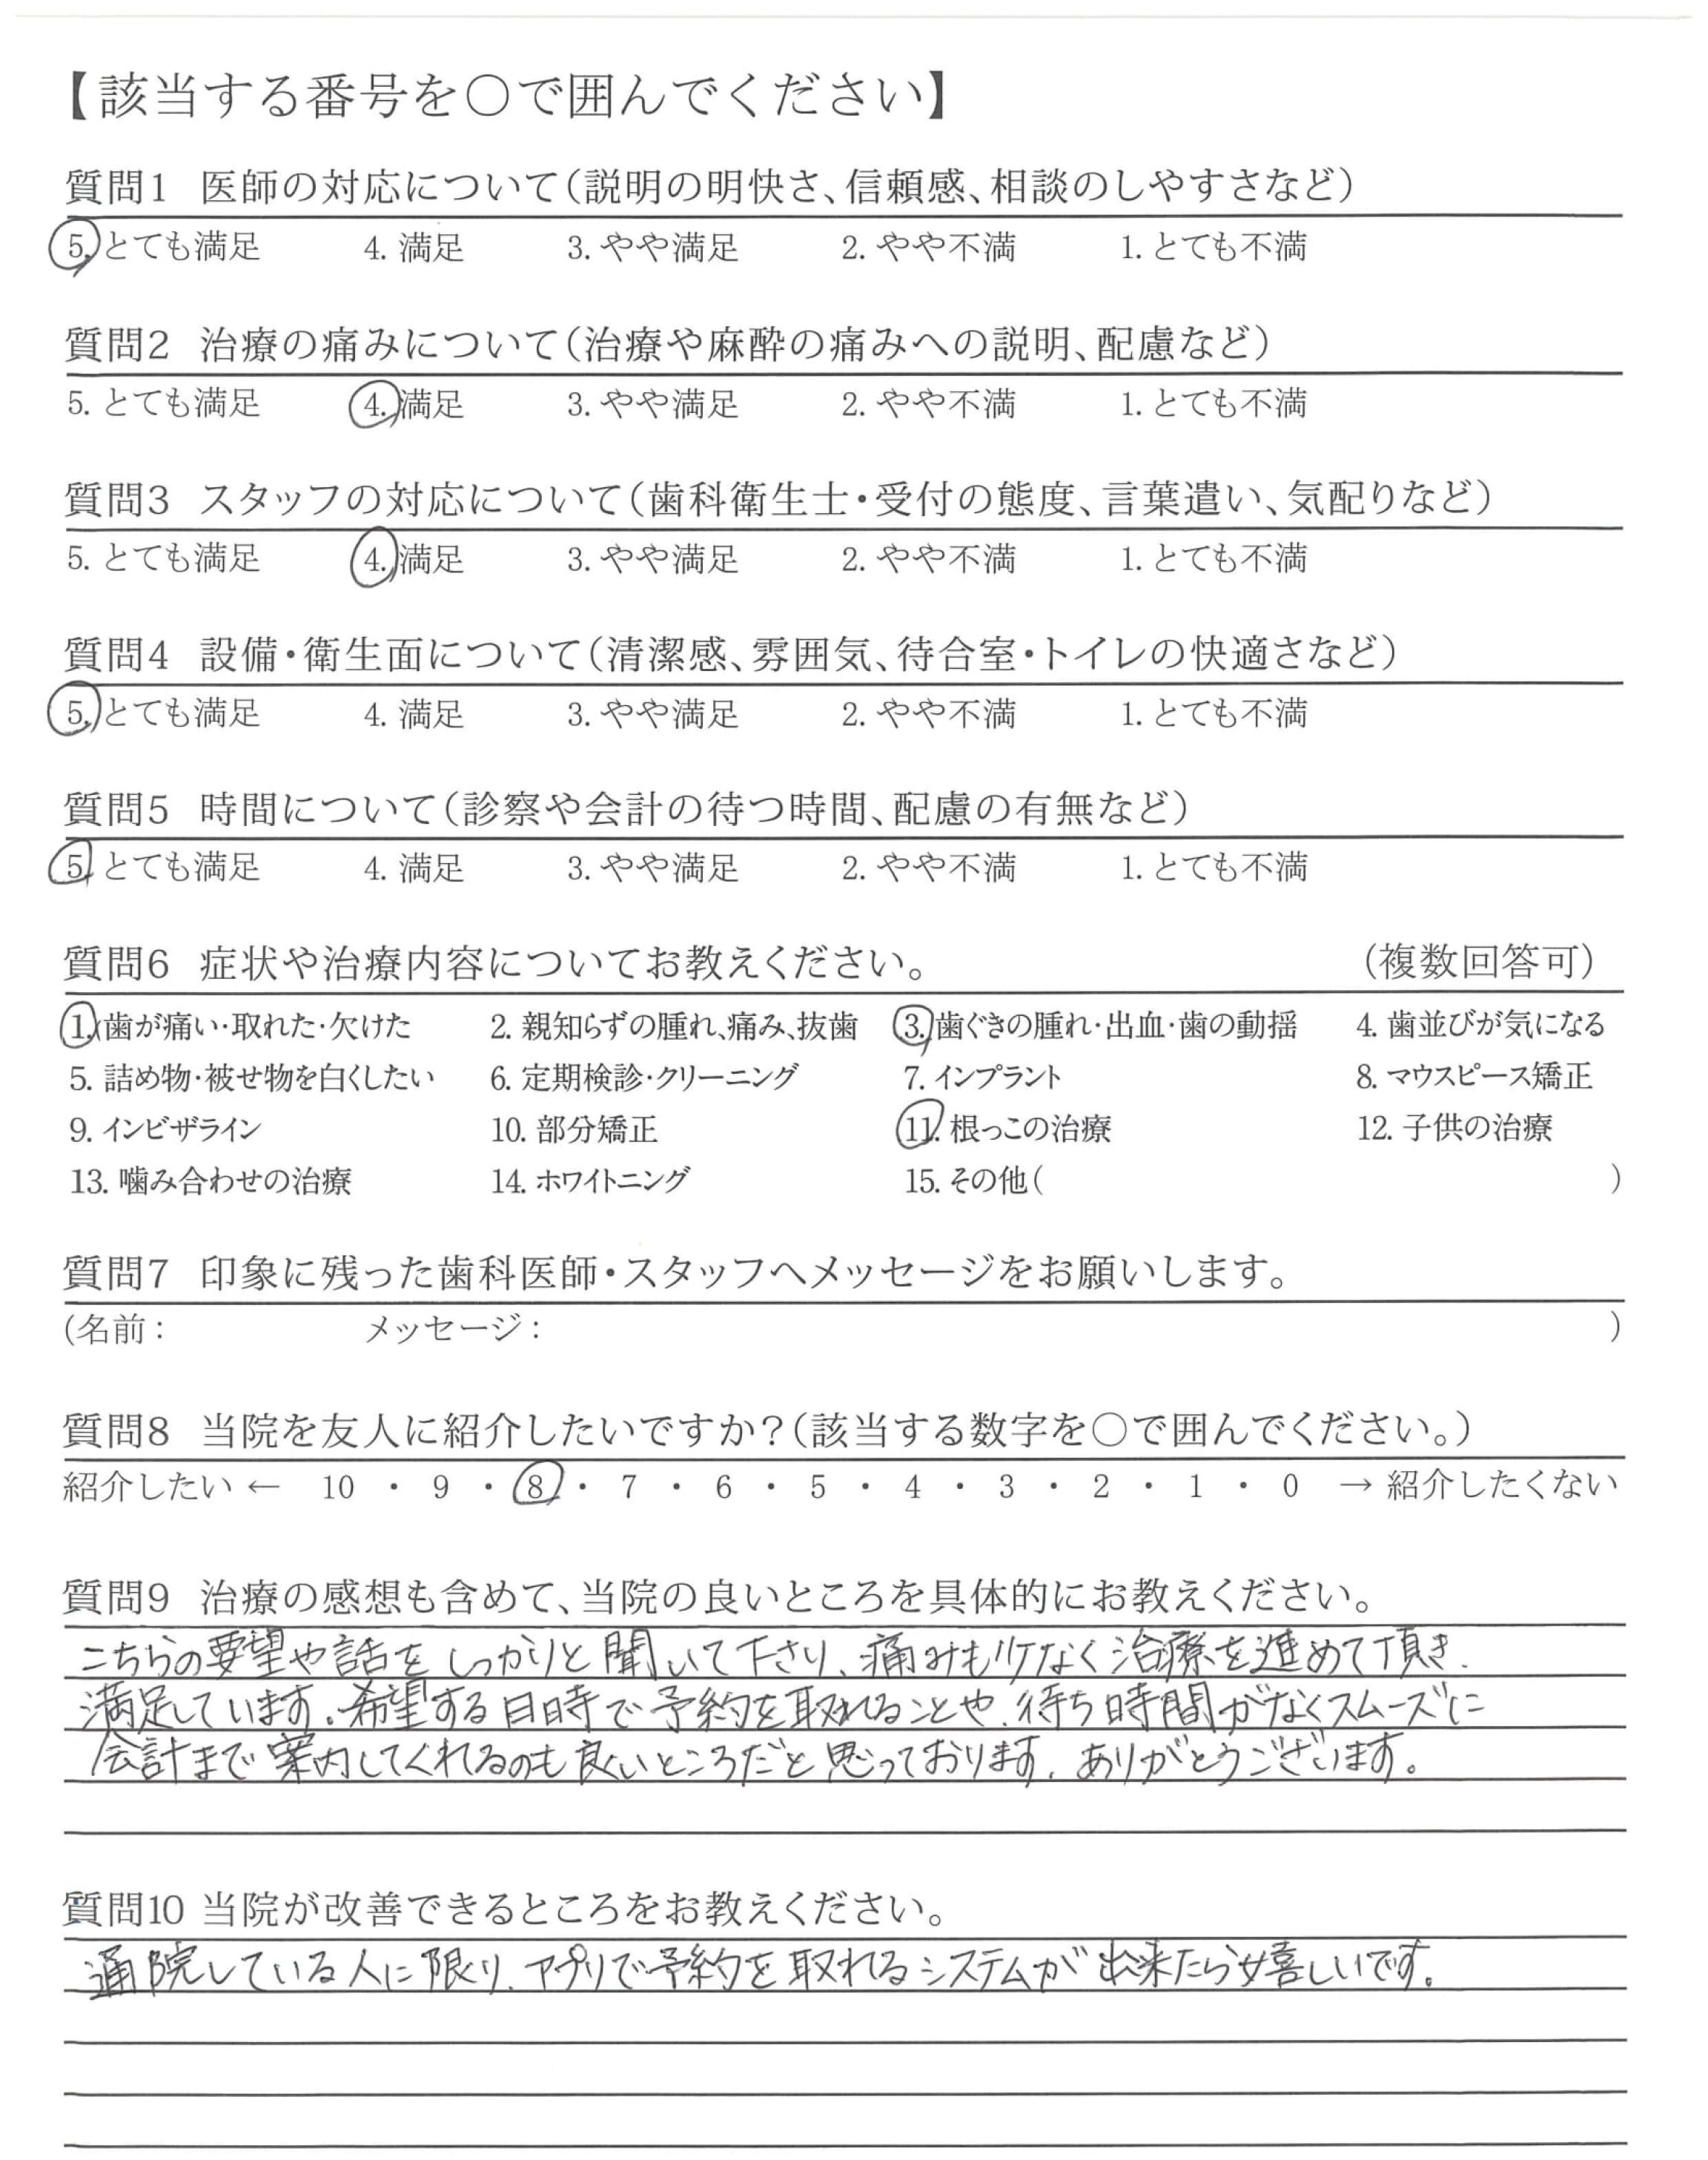 【該当する番号を○で囲んでください】
質問1 医師の対応について(説明の明快さ、信頼感、相談のしやすさなど)
5. とても満足 4. 満足 3. やや満足 2. やや不満 1. とても不満
質問2 治療の痛みについて(治療や麻酔の痛みへの説明、配慮など)
5. とても満足 4. 満足 3. やや満足 2. やや不満 1. とても不満
質問3 スタッフの対応について(歯科衛生士・受付の態度、言葉遣い、気配りなど)
5. とても満足 4. 満足 3. やや満足 2. やや不満 1. とても不満
質問4 設備・衛生面について(清潔感、雰囲気、待合室・トイレの快適さなど)
5. とても満足 4. 満足 3. やや満足 2. やや不満 1. とても不満
質問5 時間について(診察や会計の待つ時間、配慮の有無など)
5. とても満足 4. 満足 3. やや満足 2. やや不満 1. とても不満
質問6 症状や治療内容についてお教えください。 (複数回答可)
1. 歯が痛い・取れた・欠けた 2. 親知らずの腫れ、痛み、抜歯 3. 歯ぐきの腫れ・出血・歯の動揺 4. 歯並びが気になる
5. 詰め物・被せ物を白くしたい 6. 定期検診・クリーニング 7. インプラント 8. マウスピース矯正
9. インビザライン 10. 部分矯正 11. 根っこの治療 12. 子供の治療
13. 噛み合わせの治療 14. ホワイトニング 15. その他( )
質問7 印象に残った歯科医師・スタッフへメッセージをお願いします。
(名前: メッセージ: )
質問8 当院を友人に紹介したいですか?(該当する数字を○で囲んでください。)
紹介したい ← 10 ・ 9 ・ 8 ・ 7 ・ 6 ・ 5 ・ 4 ・ 3 ・ 2 ・ 1 ・ 0 → 紹介したくない
質問9 治療の感想も含めて、当院の良いところを具体的にお教えください。
こちらの要望や話をしっかりと聞いて下さり、痛みも少なく治療を進めて頂き、
満足しています。希望する日時で予約を取れることや、待ち時間がなくスムーズに
会計まで案内してくれるのも良いところだと思っております。ありがとうございます。
質問10 当院が改善できるところをお教えください。
通院している人に限り、アプリで予約を取れるシステムが出来たら嬉しいです。